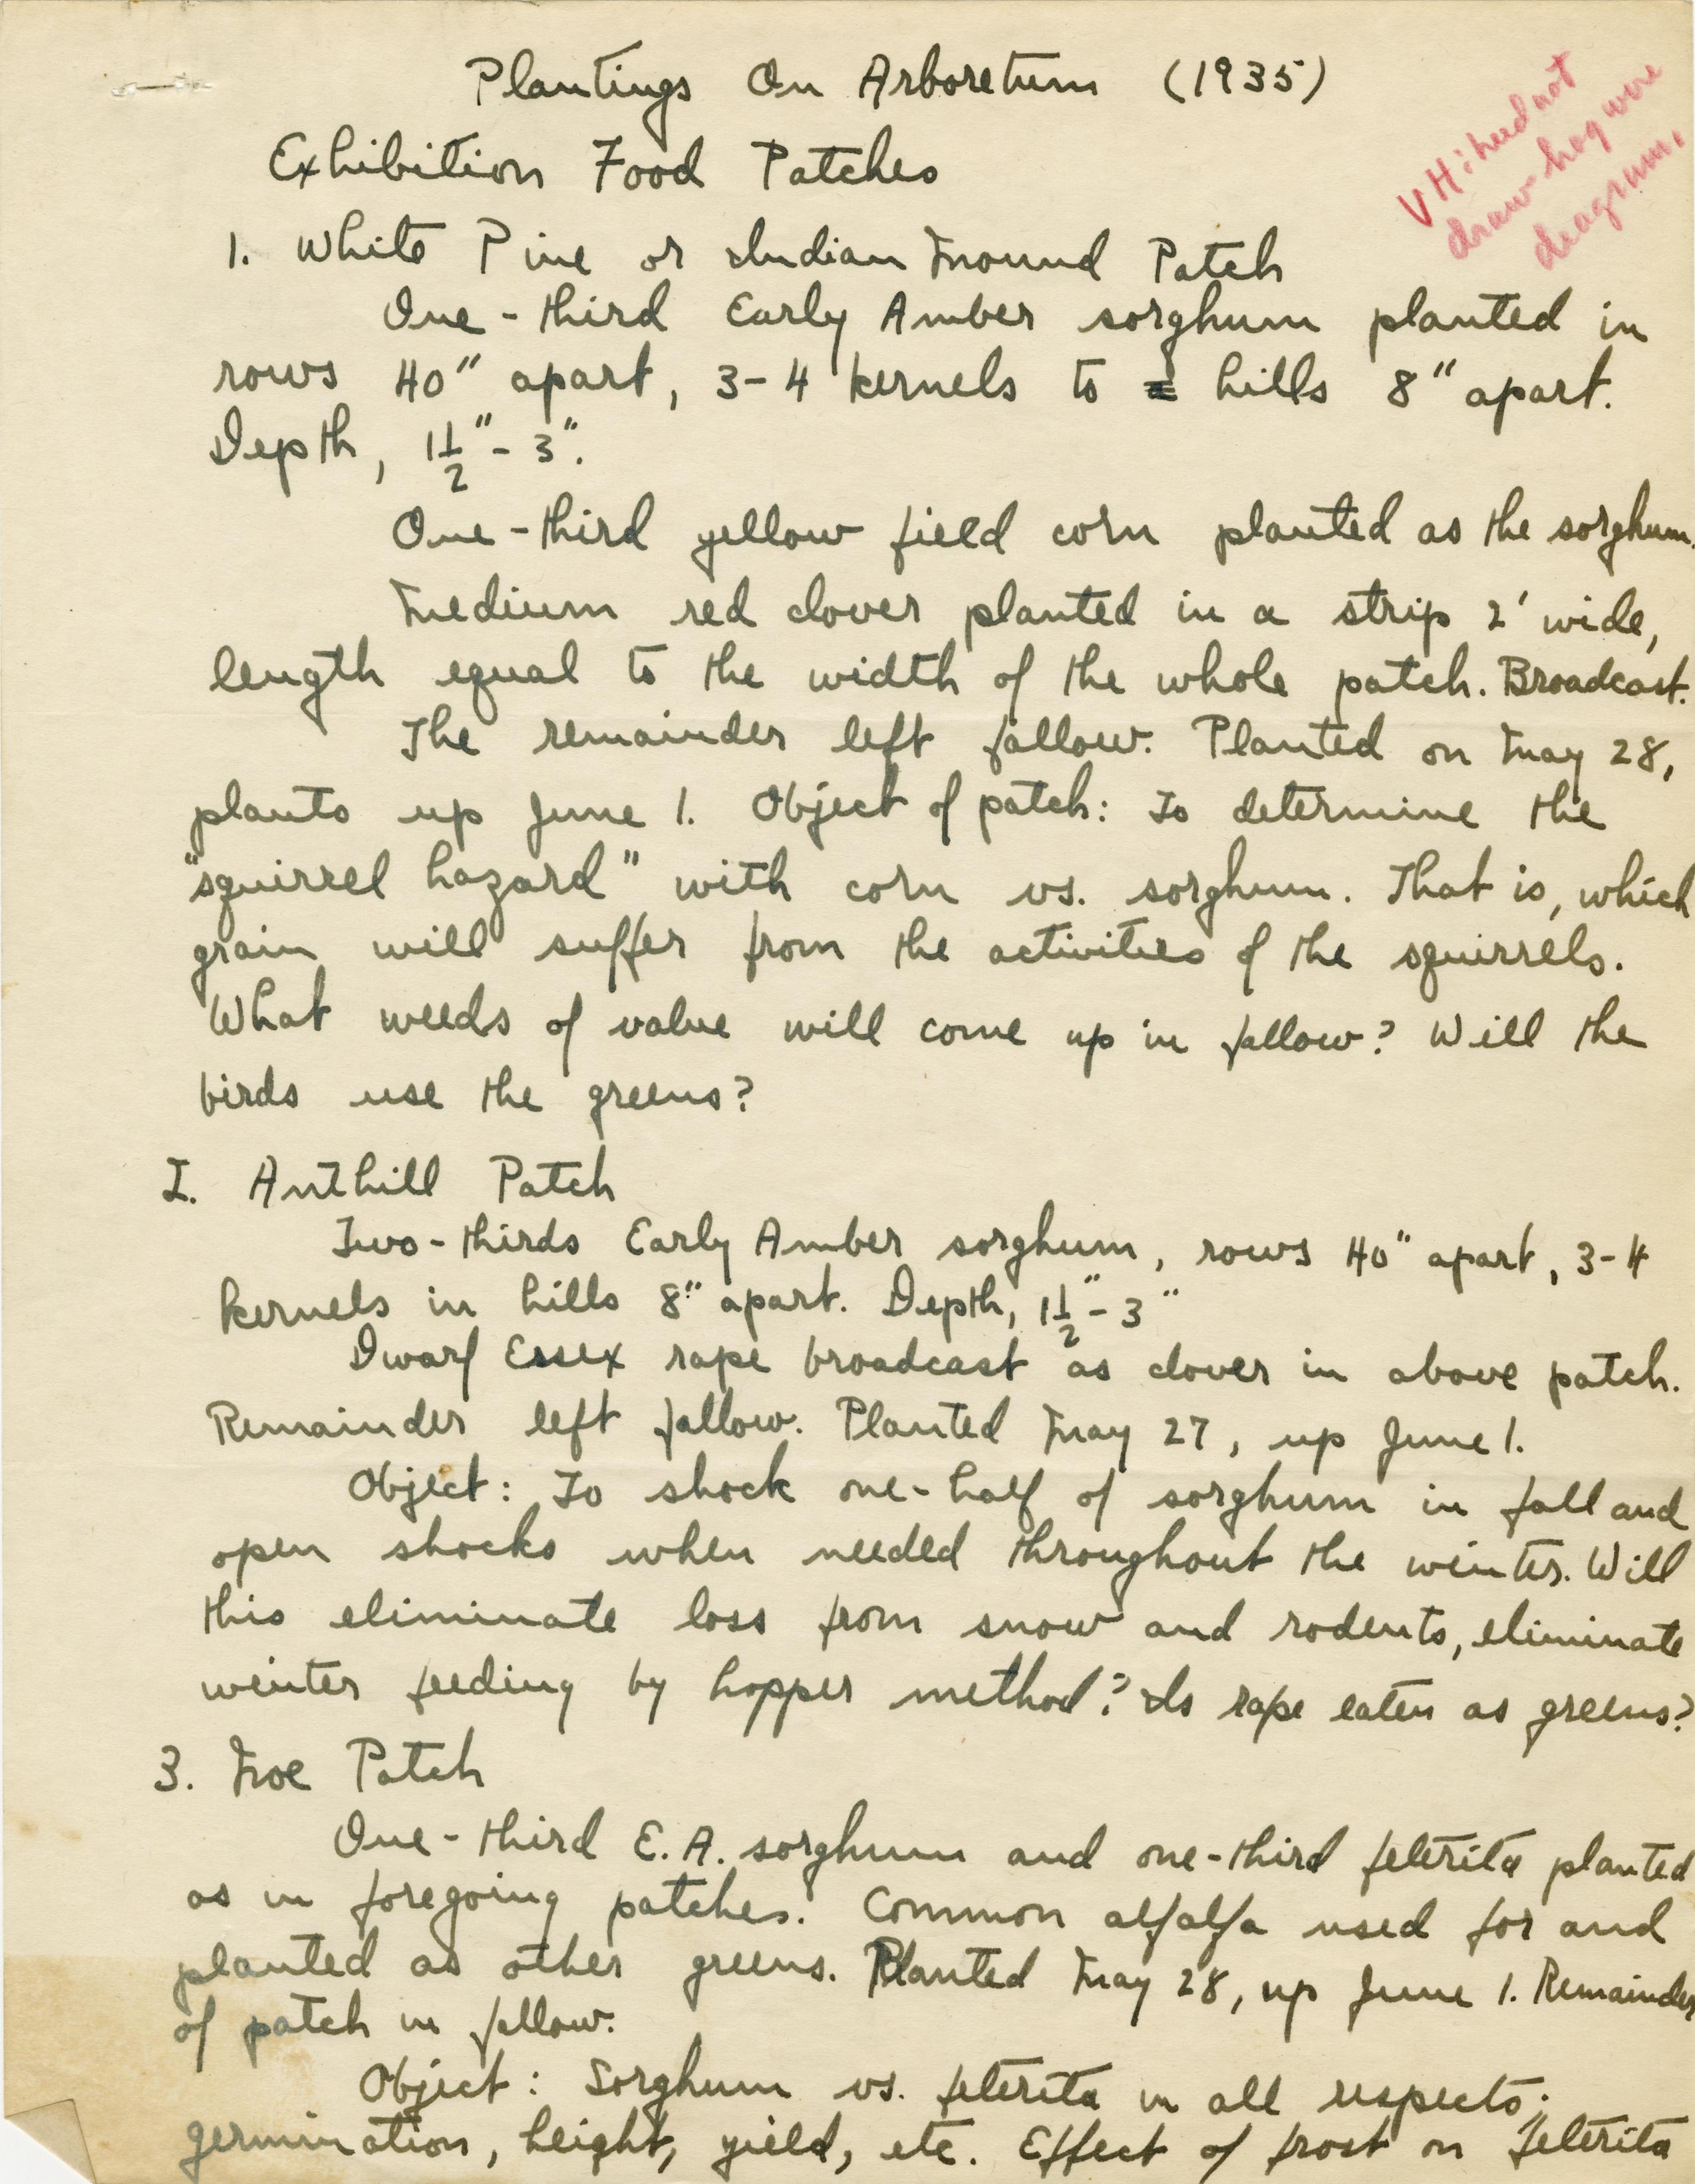 Plantings On Arboretum (1935)
VH: need not
draw hog wire
diagram.
Exhibition Food Patches
1. White Pine or Indian Mound Patch
One-third Early Amber sorghum planted in
rows 40" apart, 3-4 kernels to hills 8" apart.
Depth, 1 1/2" - 3".
One-third yellow field corn planted as the sorghum.
Medium red clover planted in a strip 2' wide,
length equal to the width of the whole patch. Broadcast.
The remainder left fallow. Planted on May 28,
plants up June 1. Object of patch: To determine the
"squirrel hazard" with corn vs. sorghum. That is, which
grain will suffer from the activities of the squirrels.
What weeds of value will come up in fallow? Will the
birds use the greens?
2. Anthill Patch
Two-thirds Early Amber sorghum, rows 40" apart, 3-4
kernels in hills 8" apart. Depth, 1 1/2" - 3"
Dwarf Essex rape broadcast as clover in above patch.
Remainder left fallow. Planted May 27, up June 1.
Object: To shock one-half of sorghum in fall and
open shocks when needed throughout the winter. Will
this eliminate loss from snow and rodents, eliminate
winter feeding by hopper method? Is rape eaten as greens?
3. Noe Patch
One-third E.A. sorghum and one-third feterita planted
as in foregoing patches. Common alfalfa used for and
planted as other greens. Planted May 28, up June 1. Remainder
of patch in fallow.
Object: Sorghum vs. feterita in all respects;
germination, height, yield, etc. Effect of frost on feterita